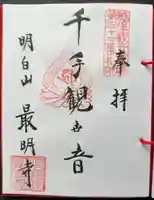 奉拝
千手観世音
明白山 最明寺